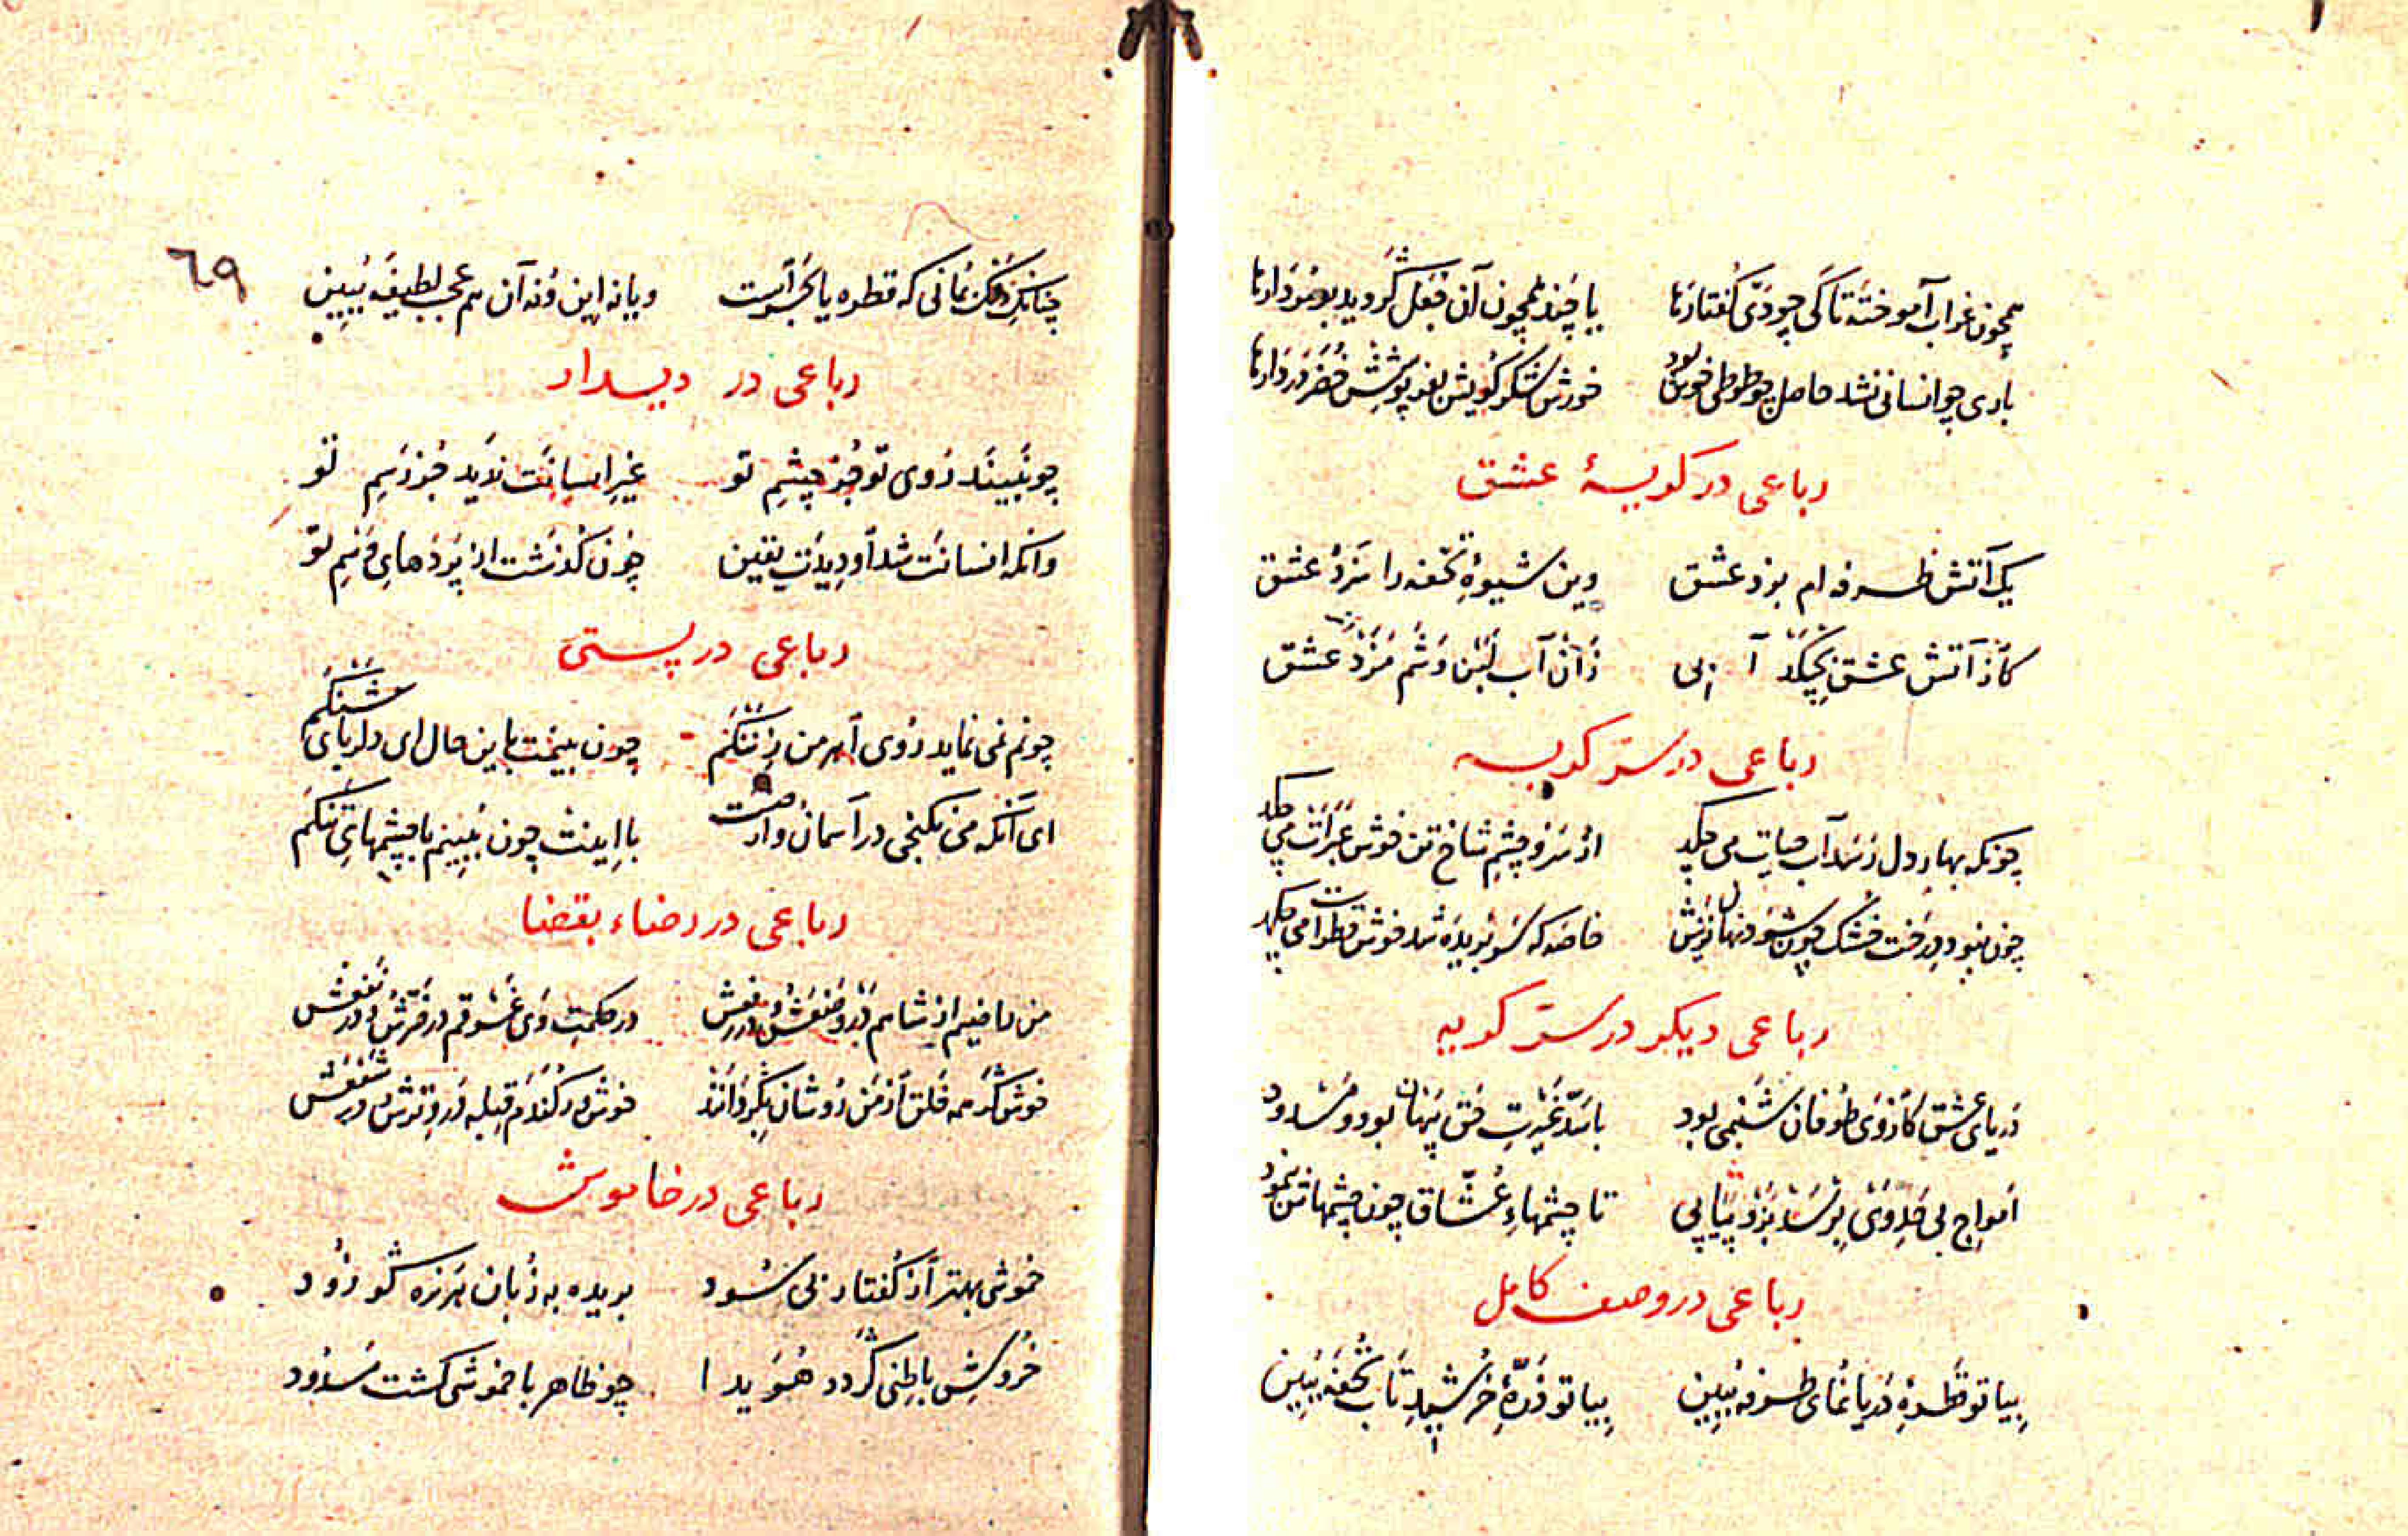 همچون غراب آموخته تا کی چو دی گفتارها یا چند همچون آن فعل گروید بدمردارها
باری چو انسانی نشد حاصل چو طوطی خوش بود خورش شکر کویش لغو پوشش خضر دردارها
رباعی در کویهٔ عشق
یک آتش طرفه ام بزد عشق وین شیوهٔ تحفه را سزد عشق
کاز آتش عشق بچکد آبی زان آب لبن وشم مزد عشق
رباعی در سرّ کریه
چونکه بهار دل رسد آب حیات می چکد از سر و چشم شاخ تن خوش عبرات می چکد
چون نبود درخت خشک چون شود نهان ترش خاصه که سر بریده شد خوش قطرات می چکد
رباعی دیکر در سرّ کریه
دریای عشق کاز وی طوفان شبنمی بود با سدّ غیرت حق پنهان بود و مسدود
امواج بی حد وی بر سد بزد پیاپی تا چشمهاء عشّاق چون چشمهاش بنمود
رباعی در وصف کامل
بیا تو قطرهٔ دریا نمای طرفه ببین بیا تو ذرّهٔ خرشید تاب تحفه ببین
٦٩
چنانک فکن نمانی که قطره یا بحر است و یا نه این و نه آن هم عجب لطیفه ببین
رباعی در دیدار
چو نبیند روی تو جز چشم تو غیر انسانت ندید جز رسم تو
وانکه انسانت شد او دیدت یقین چون گذشت از پردهای وسم تو
رباعی در پستی
چونم نمی نماید روی آهر من ز ننکم چون بیخت باین حال ای دلربای شنکم
ای آنکه می نکنجی در آسمان و ارضت با اینت چون ببینم با چشمهای تنکم
رباعی در رضاء بقضا
من راضیم از شاهم در وضعش و در رفعش در حکمت وی غرقم در فرقش و در نفعش
خوش گر همه خلق از من رو شان بگردانند خوش در کندم قبله در وترش و در شفعش
رباعی در خاموشی
خموشی بهتر از گفتار بی سود بریده به زبان هرزه گو زود
خروش باطنی گردد هویدا چو ظاهر با خموشی کشت مسدود